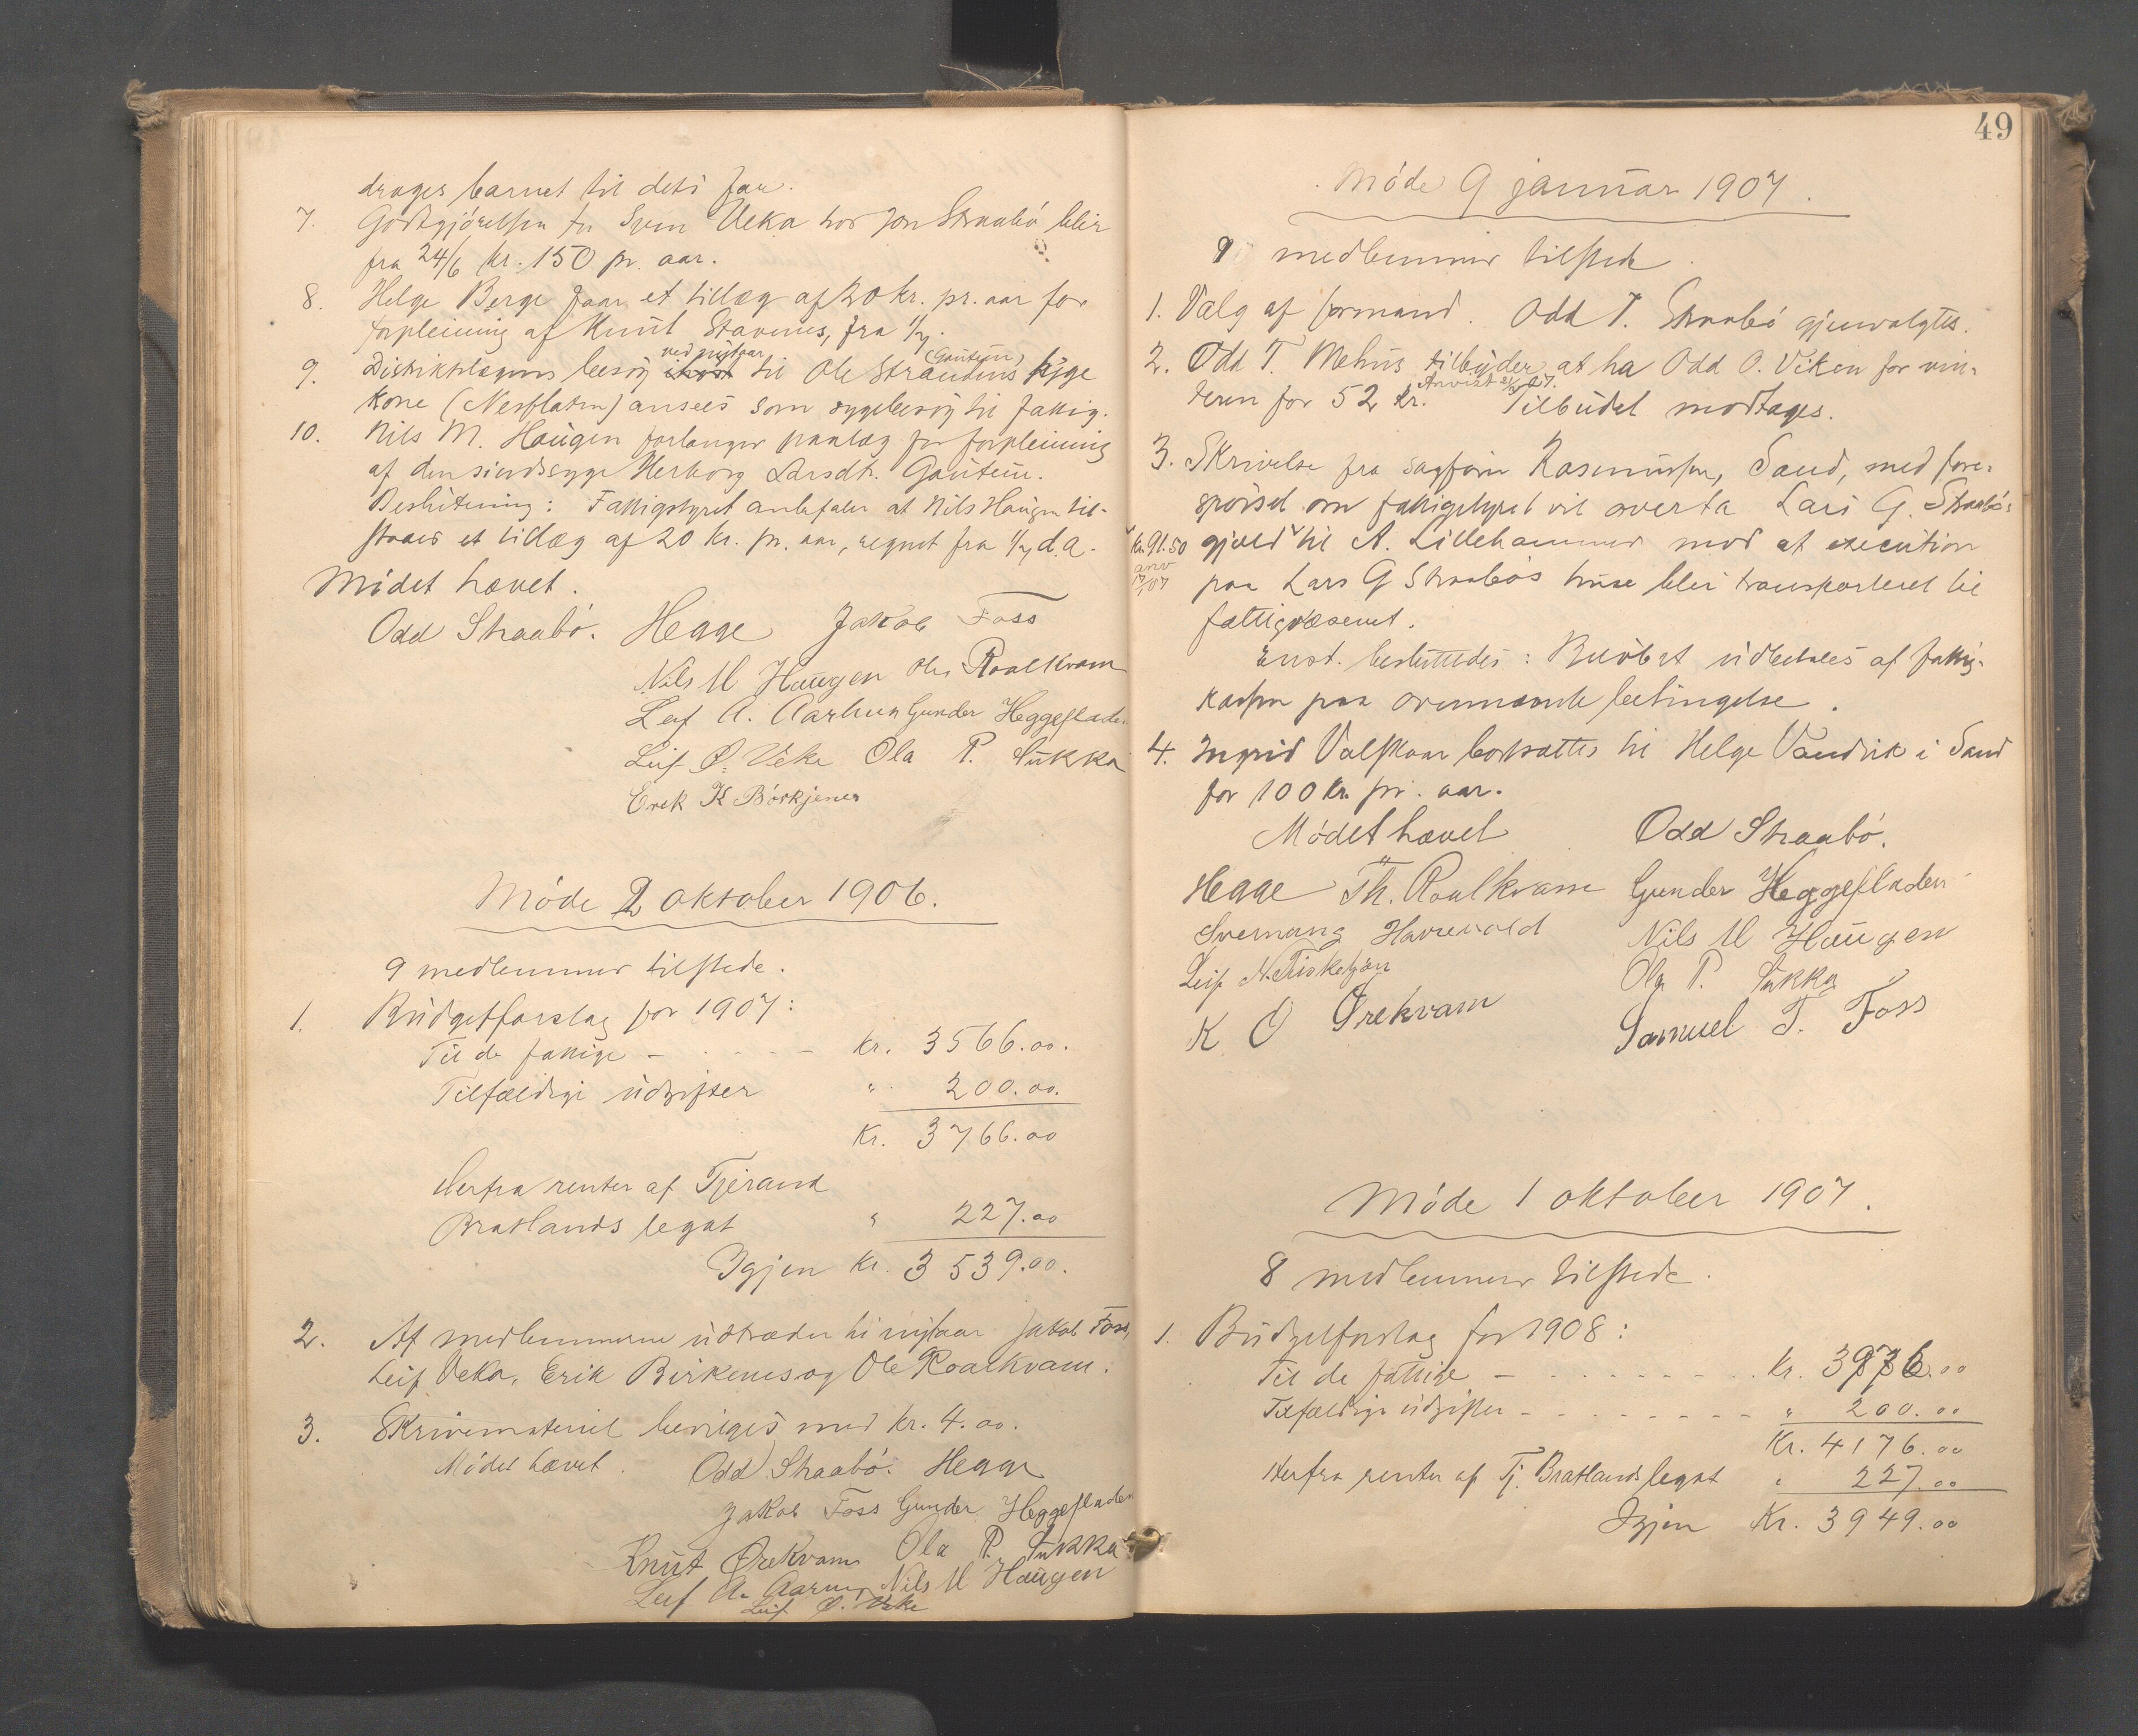 drages barnet til dets far.
7. Godtgjörelsen for Sven Veka hos Jon Straabö blir
fra 24/6 kr. 150 pr. aar.
8. Helge Berge faar et tillæg af 20 kr. pr. aar for
forpleining af Knut Stavenes, fra 1/7.
9. Distriktslægens besøg ved nytaar til Ole Strandens (Gautein) syge
kone (Nesflaten) ansees som sygebesøg til fattig.
10. Nils M. Haugen forlanger paalæg for forpleining
af den sindssyge Herborg Larsdtr. Gautein.
Beslutning: Fattigstyret anbefaler at Nils Haugen til-
staaes et tillæg af 20 kr. pr. aar, regnet fra 1/7 d.a.
Mödet hævet.
Odd Straabö. Hegge Jakob Foss
Nils M Haugen Ole Roalkvam
Leif A. Aarhus Gunder Heggefladen
Leif Ø. Veka Ola P. Sukka
Erek K
Möde 2 oktober 1906.
9 medlemmer tilstede.
1. Budgetforslag for 1907:
Til de fattige - kr. 3566.00.
Tilfældige udgifter " 200.00.
Kr. 3766.00
Herfra renter af Tjerand
Bratlands legat " 227.00
Igjen kr. 3539.00.
2. Af medlemmerne udtræder til nytaar Jakob Foss,
Leif Veka, Erik Birkenes og Ole Roalkvam.
3. Skrivemateriel bevilges med kr. 4.00.
Mödet hævet. Odd Straabö. Hegge
Jakob Foss Gunder Heggefladen
Knut Ørekvam Ola P. Sukka
Leif A. Aarhus Nils M Haugen
Leif Ø. Veka
49
Möde 9 januar 1907.
9 medlemmer tilstede.
1. Valg af formand. Odd T. Straabö gjenvalgtes.
2. Odd T. Mehus tilbyder at ha Odd O. Viken for vin-
teren for 52 kr. Anvist 07. Tilbudet modtages.
3. Skrivelse fra sagförer Rasmussen, Sand, med fore-
spörsel om fattigstyret vil overta Lars G. Straabös
kr. 91.50 gjæld til A. Lillehammer mod at execution
anv 07 paa Lars G Straabös huse blir transporteret til
fattigvæsenet.
Enst. besluttedes: Belöbet udbetales af fattig-
kassen paa ovennævnte betingelse.
4. Ingrid Valskaar bortsattes til Helge Vandvik i Sand
for 100 kr. pr. aar.
Mödet hævet Odd Straabö.
Hegge Th. Roalkvam Gunder Heggefladen
Svernung Havrevold Nils M Haugen
Leif N. Ola P. Sukka
K O Ørekvam Samuel T. Foss
Möde 1 oktober 1907.
8 medlemmer tilstede.
1. Budgetforslag for 1908:
Til de fattige - kr. 3976.00
Tilfældige udgifter - " 200.00
Kr. 4176.00
Herfra renter af Tj. Bratlands legat " 227.00
Igjen Kr. 3949.00